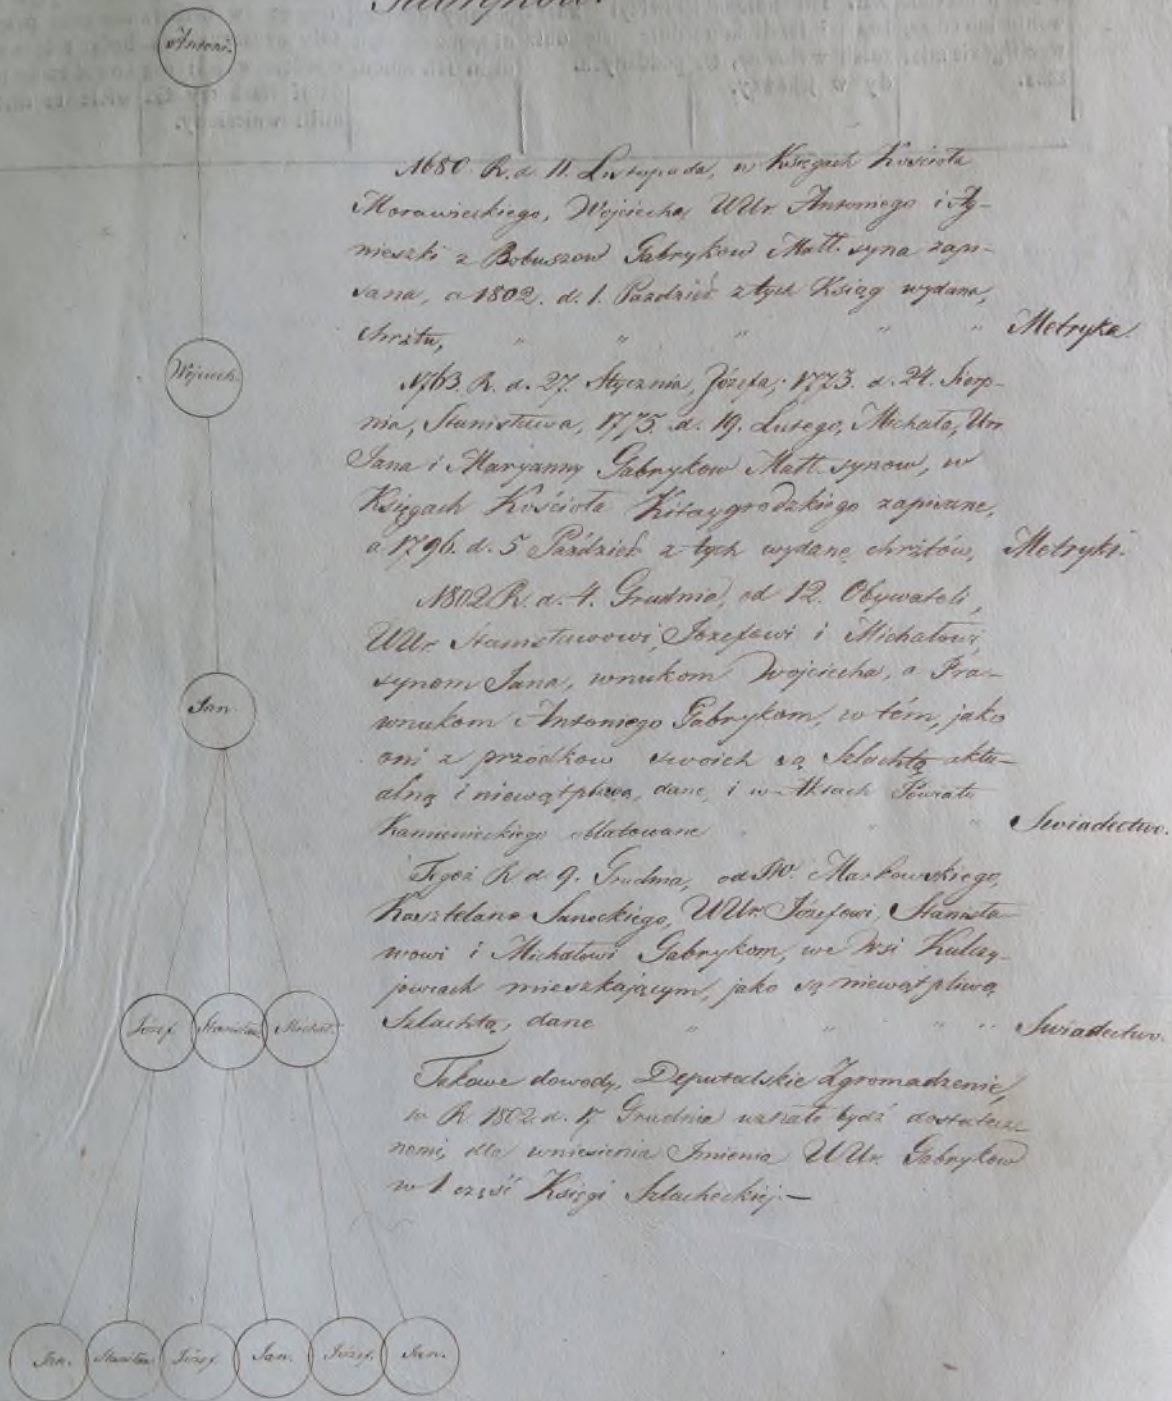 Gabryków.
Antoni.
1680. R. d. 11. Listopada, w Księgach Kościoła
Morawieckiego, Wojciecha, UUr. Antoniego i Ag-
nieszki z Bobuszow Gabrykow Małł. syna zapi-
sana, a 1802. d. 1. Paździer. z tych Ksiąg wydana,
chrztu, " " " " " Metryka.
Wojciech.
1763. R. d. 27. Stycznia, Józefa; 1773. d. 24. Sierp-
nia, Stanisława, 1775. d. 19. Lutego, Michała, Urr
Jana i Maryanny Gabrykow Małł. synow, w
Księgach Kościoła Kitaygrodzkiego zapisane,
a 1796. d. 5 Paździer. z tych wydane chrztów, Metryki.
1802 R. d. 4. Grudnia, od 12. Obywateli,
UUr. Stanisławowi, Jozefowi i Michałowi,
synom Jana, wnukom Wojciecha, a Pra-
Jan.
wnukom Antoniego Gabrykom, w tém, jako
oni z przodkow swoich są Szlachtą aktu-
alną i niewątpliwą, dane, i w Aktach Powiatu
Kamienieckiego oblatowane " " " Swiadectwo.
Tegoż R. d. 9. Grudnia, od JW. Markowskiego,
Kasztelana Sanockiego, UUr. Józefowi, Stanisła-
wowi i Michałowi Gabrykom, we Wsi Kulczy-
jowcach mieszkającym, jako są niewątpliwą
Szlachtą, dane " " " " Swiadectwo.
Józef. Stanisław Michał.
Takowe dowody, Deputatskie Zgromadzenie,
w R. 1802. d. 17 Grudnia uznało bydź dostatecz-
nemi, dla wniesienia Imienia UUr. Gabrykow
w 1 część Księgi Szlacheckiéj.—
Jan. Stanisław Józef. Jan. Józef. Jan.